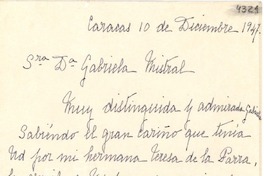 4321
Caracas 10 de Diciembre 1947.
Sra Da Gabriela Mistral
Muy distinguida y admirada Gabriela
Sabiendo el gran cariño que tenía
Ud por mi hermana Teresa de la Parra,